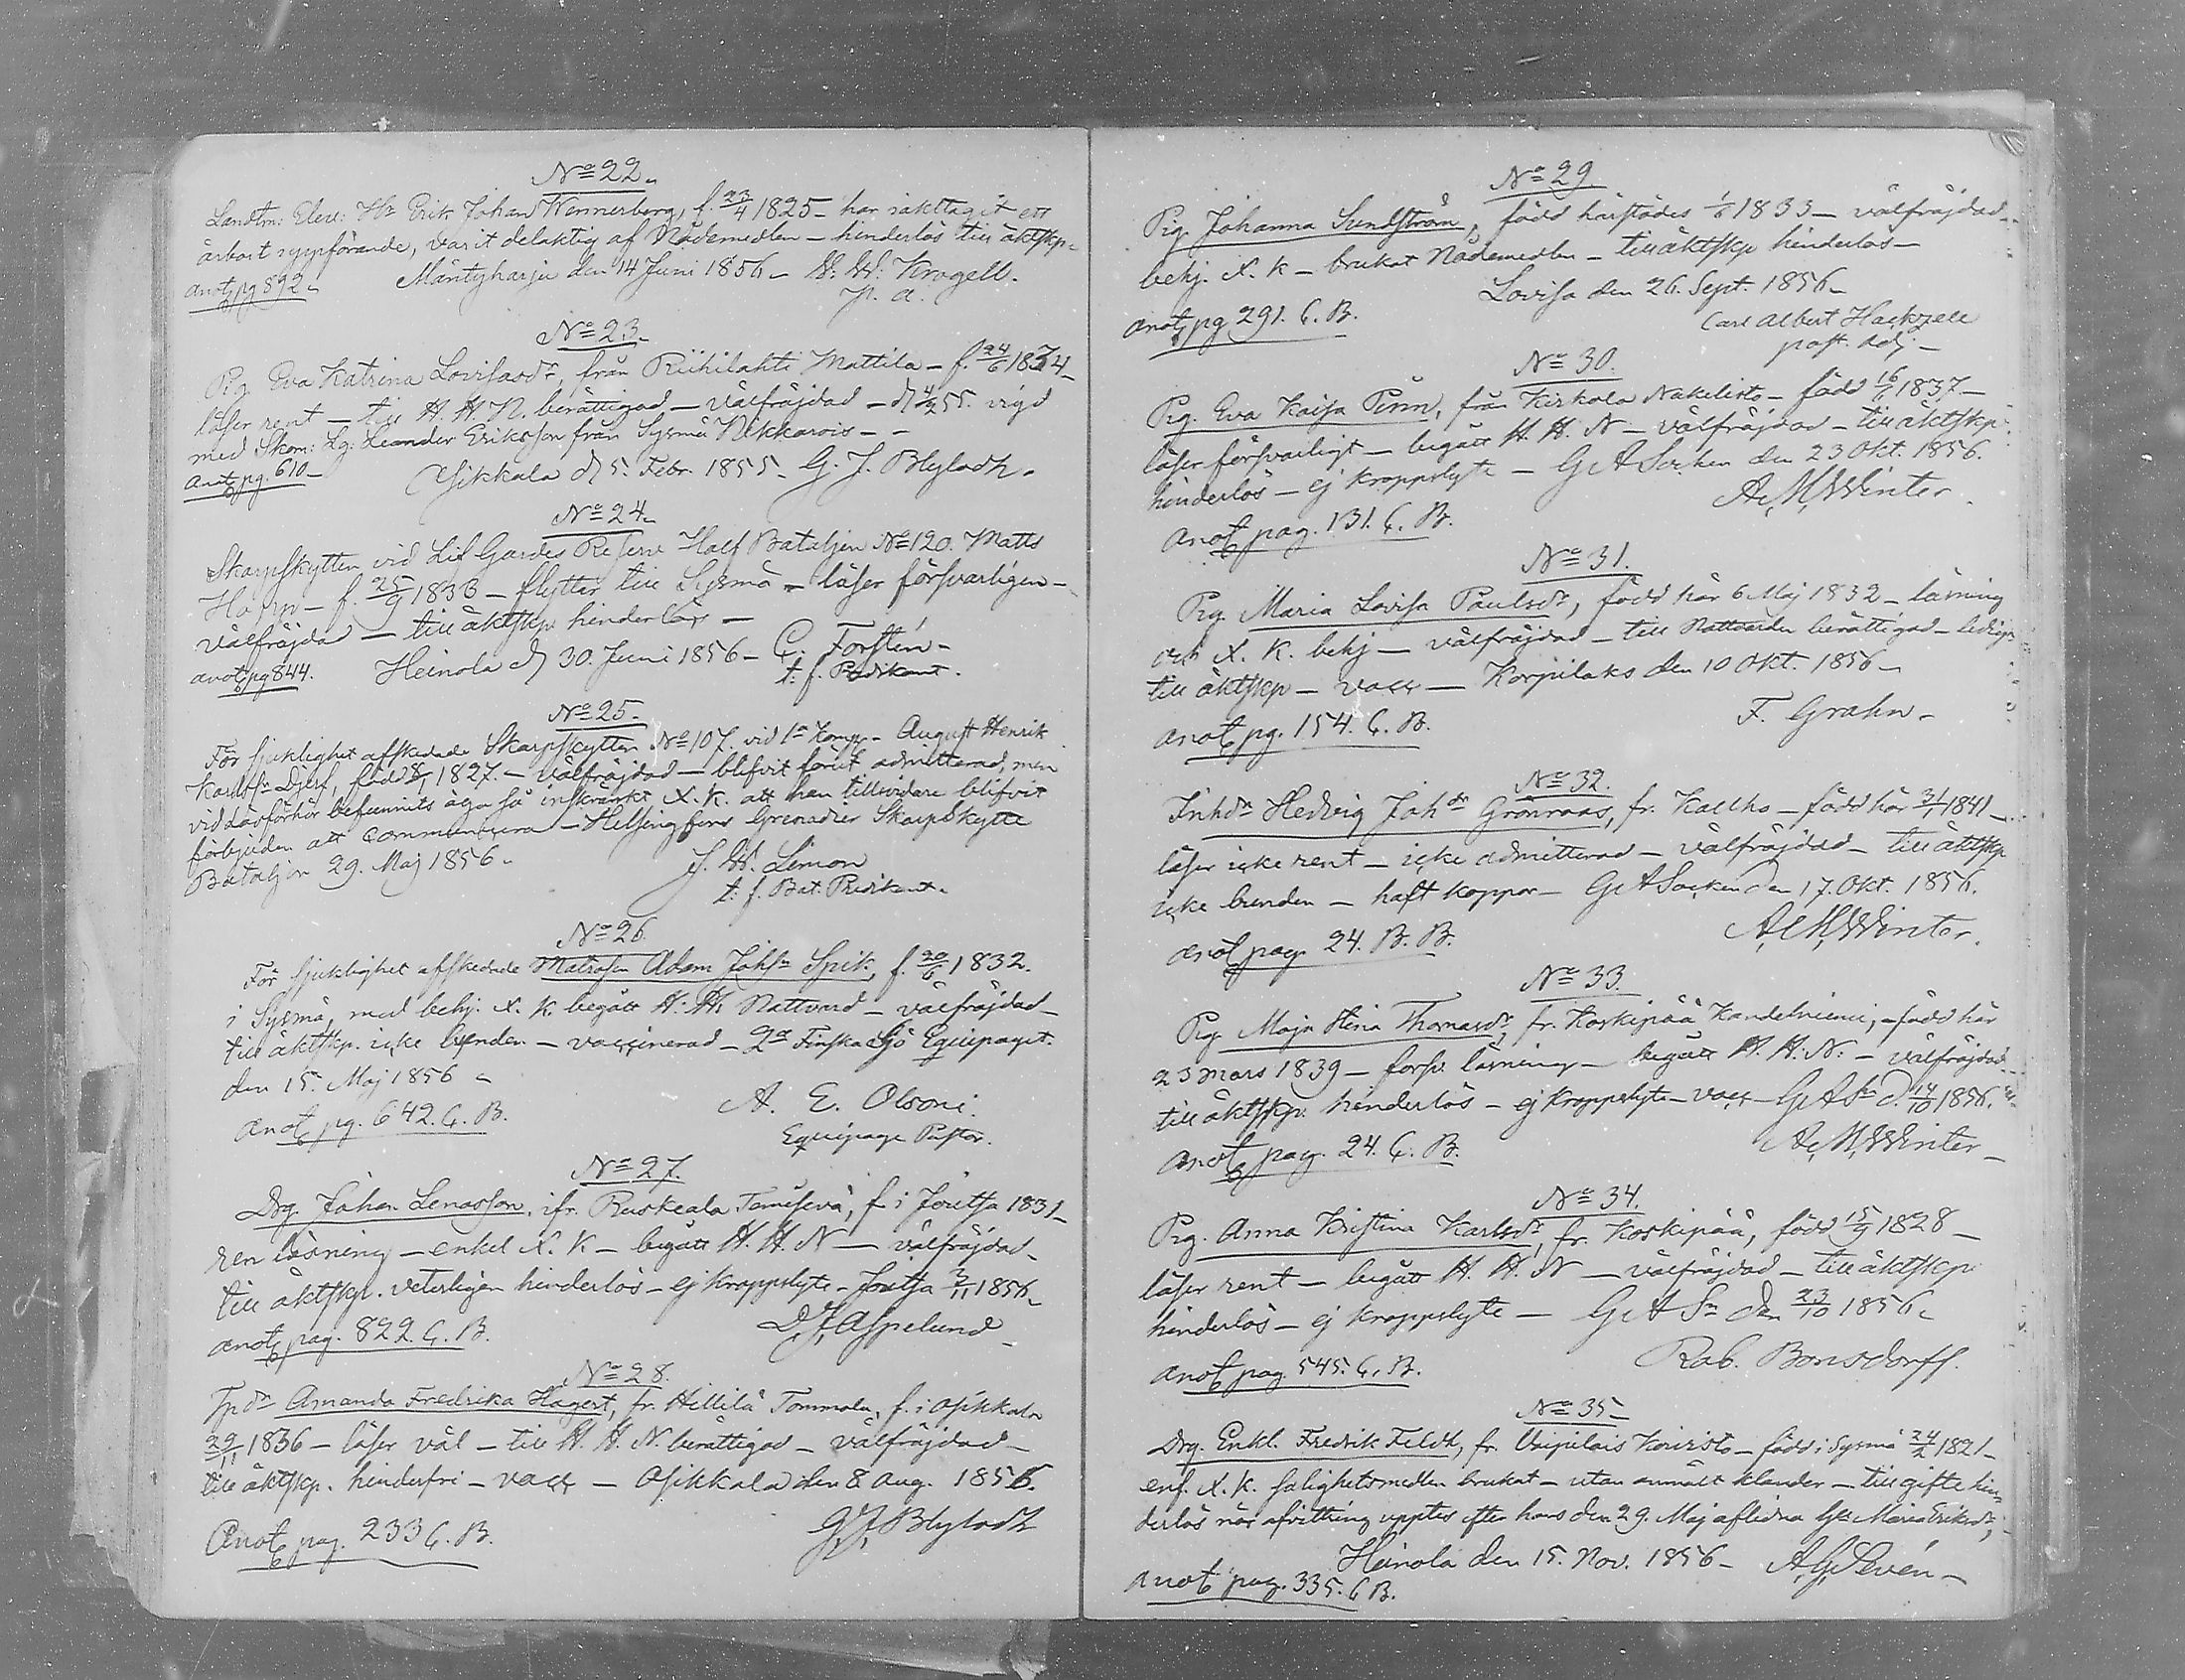 No 22.
Landtm: Elev: Hr Erik Johan Wennerberg, f. 23/4 1825 - har iakttagit ett
ärbart uppförande, varit delaktig af Nådemedlen - hinderlös till äktskp.
anot. pg 892. Mäntyharju den 14 Juni 1856 - W: Krogell.
p. a.
No 23.
Pig. Eva Katrina Lovisasdr, från Riihilahti Mattila - f. 24/6 1834 -
läser rent - till H. H. N. berättigad - välfräjdad - d 4/2 55. vigd
med Skom: Lg: Leander Eriksson från Sysmä Nikkarois - -
anot. pg. 610 - Asikkala d 5. Febr. 1855. G. J. Blyladh.
No 24.
Skarpskytten vid Lif Gardes Reserve Half Bataljon No 120. Matts
Harp - f. 25/9 1833 - flyttar till Sysmä - läser försvarligen -
välfräjdad - till äktskp hinderlös -
anot. pg 844. Heinola d 30. Juni 1856 - C. Forstén -
t. f. Predikant.
No 25.
För sjuklighet afskedade Skarpskytten No 107. vid 1a Komp. - August Henrik
Karlsson Djerf, född 8/1 1827. - välfräjdad - blifvit förut admitterad, men
vid Läsförhör befunnits äga så inskränkt X. K. att han tillsvidare blifvit
förbjuden att communicera - Helsingfors Grenadier Skarpskytte
Bataljon 29. Maj 1856 - J. W. Limon
t. f. Bat. Predikant.
No 26.
För sjuklighet afskedade Matrosen Adam Johsn Spik, f. 20/6 1832.
i Sysmä, med behj. X. K. begått H. H. Nattvard - välfräjdad -
till äktskp. icke bunden - vaccinerad - 2a Finska Sjö Equipaget.
den 15. Maj 1856 -
anot. pg. 642. C. B. A. E. Olsoni.
Equipage Pastor.
No 27.
Drg. Johan Lenasson, ifr. Ruskeala Tamiseva, f. i Joutsa 1831 -
ren läsning - enkel X. K - begått H. H. N - välfräjdad -
till äktskp. veterligen hinderlös - ej kroppslyte - Joutsa 3/11 1856 -
anot. pag. 822. C. B. D. J. Aspelund -
No 28.
Tpdr Amanda Fredrika Hagert, fr. Hillilä Tommola, f. i Asikkala
29/11 1836 - läser väl - till H. H. N. berättigad - välfräjdad -
till äktskp. hinderfri - vacc - Asikkala den 8 Aug. 1856.
Anot. pag. 233 C. B. G. J. Blyladh
No 29.
Pig. Johanna Sundström, född härstädes 1/6 1833 - välfräjdad -
behj. X. K - brukat Nådemedlen - till äktskp hinderlös -
Lovisa den 26. Sept. 1856 -
anot. pg 291. C. B. Carl Albert Hackzell
past. adj. -
No 30.
Pig. Eva Kaisa Penn, från Kirkola Nakelisto - född 16/1 1837 -
läser försvarligt - begått H. H. N - välfräjdad - till äktskp.
hinderlös - ej kroppslyte - G A Socken den 23 Okt. 1856.
anot. pag. 131. C. B. A. M. Winter.
No 31.
Pig. Maria Lovisa Paulsdr, född här 6 Maj 1832 - läsning
och X. K. behj - välfräjdad - till Nattvarden berättigad - ledig
till äktskp - vacc - Korpilaks den 10 Okt. 1856 -
anot. pg. 154. C. B. F. Grahn -
No 32.
Inhdr Hedvig Johdr Grönroos, fr. Kalho - född här 31/1 1841 -
läser icke rent - icke admitterad - välfräjdad - till äktskp
icke bunden - haft koppor - G A Socken den 17. Okt. 1856.
anot. pag. 24. B. B. A. M. Winter.
No 33.
Pig. Maja Stina Thomasdr, fr. Koskipää Kandelniemi, - född här
23 mars 1839 - försv. läsning - begått H. H. N: - välfräjdad -
till äktskp. hinderlös - ej kroppslyte - vacc - G A Sn d. 14/10 1856.
anot. pag. 24. C. B. A. M. Winter -
No 34.
Pig. Anna Kristina Karlsdr, fr. Koskipää, född 15/9 1828 -
läser rent - begått H. H. N - välfräjdad - till äktskp
hinderlös - ej kroppslyte - G A Sn den 23/10 1856 -
anot. pag. 545. C. B. Rab. Bonsdorff.
No 35 -
Drg. Enkl. Fredrik Feldt, fr. Voipilais Kouvisto - född i Sysmä 24/2 1821 -
enf. X. K. salighetsmedlen brukat - utan anmält klander - till gifte hin-
derlös när afvittring upptes efter hans den 29. Maj aflidna Hu Maria Eriksdr,
Heinola den 15. Nov. 1856 - A. G. Levén -
anot. pag. 335. C B.